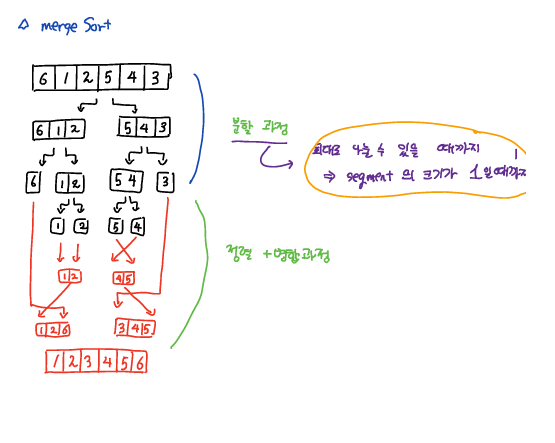 △ merge Sort
6 1 2 5 4 3
6 1 2 5 4 3
6 1 2 5 4 3
1 2 5 4
1 2 4 5
1 2 6 3 4 5
1 2 3 4 5 6
분할 과정
최대로 나눌 수 있을 때까지
⇒ segment 의 크기가 1일때까지
정렬 + 병합과정